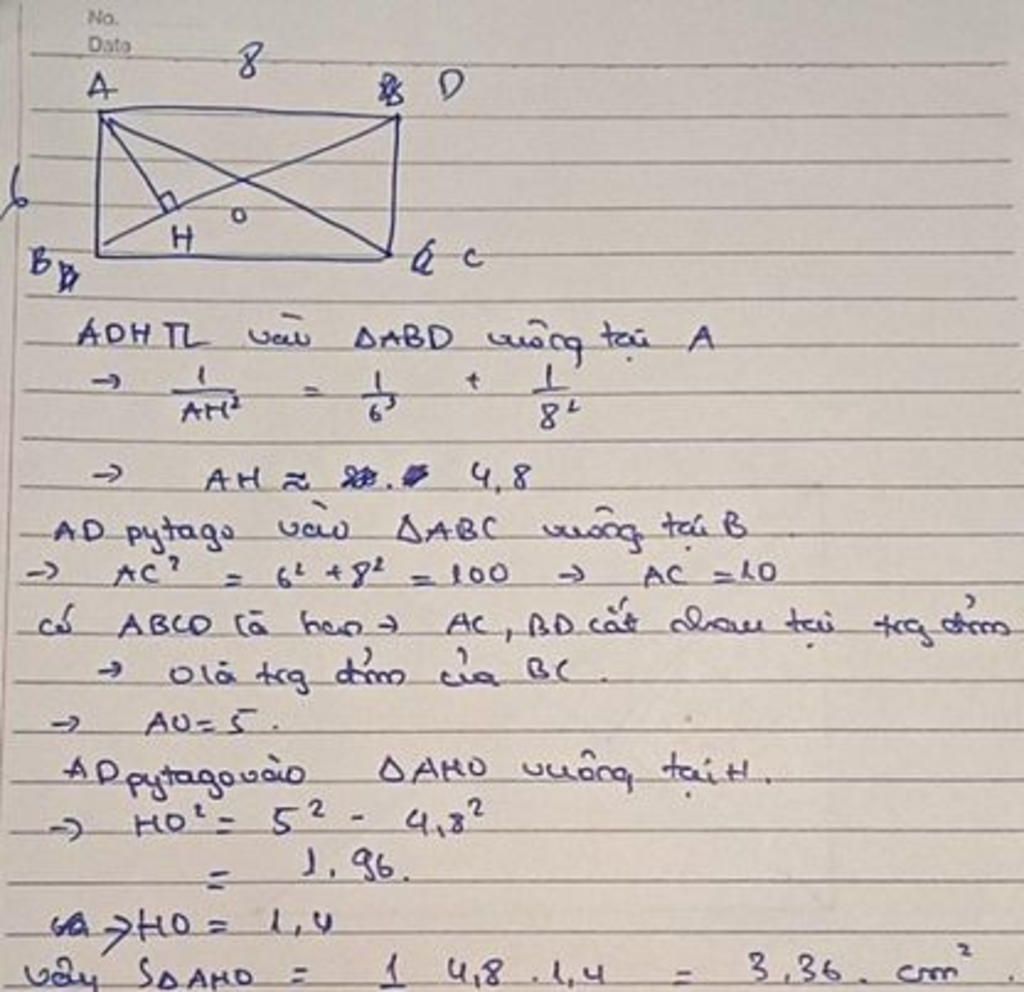 No.
Date
8
A D
6
H O
B C
ADHTL vào ΔABD vuông tại A
→ 1/AH² = 1/6² + 1/8²
→ AH ≈ 4,8
AD pytago vào ΔABC vuông tại B
→ AC² = 6² + 8² = 100 → AC = 10
có ABCD là hcn → AC, BD cắt nhau tại trg điểm
→ O là trg điểm của BC.
→ AO = 5.
AD pytago vào ΔAHO vuông tại H.
→ HO² = 5² - 4,8²
= 1,96.
→ HO = 1,4
vậy SΔAHO = 1 4,8 . 1,4 = 3,36. cm².